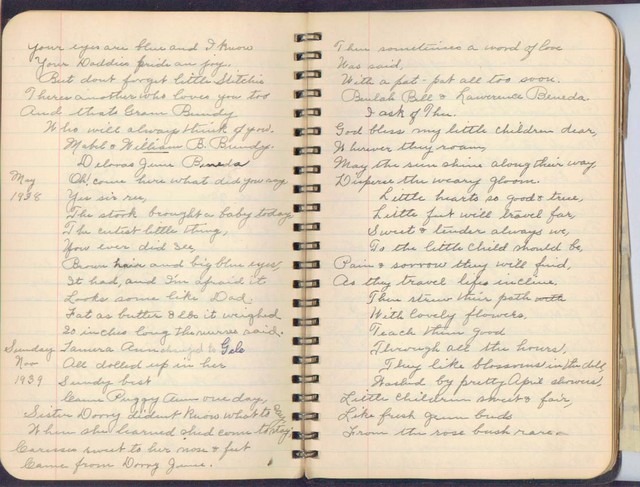 Your eyes are blue and I know
Your Daddies pride an joy.
But dont forget little
Theres another who loves you too
And thats Gram Bundy
Who will always think of you.
Mabel & William B. Bundy.
Deloras June Beneda
May
1938
Oh! come here what did you say
Yes sir ree,
The stork brought a baby today
The cutest little thing,
You ever did see,
Brown hair and big blue eyes
It had, and I'm afraid it
Looks some like Dad.
Fat as butter & 8 lbs it weighed
20 inches long the nurse said.
Sunday
Nov
1939
Tamera Ann Gele
All dolled up in her
Sunday best
Came Peggy Ann one day,
Sister Dorry dident know what to say
When she learned shed come to stay
Caresses sweet to her nose & feet
Came from Dorry June.
Then sometimes a word of love
Was said,
With a pat-pat all too soon.
Beulah Bell & Lawerence Beneda.
I ask of Thee.
God bless my little children dear,
Wherever they roam,
May the sun shine along their way
Disperse the weary gloom.
Little hearts so good & true,
Little feet will travel far,
Sweet & tender always we,
To the little child should be,
Pain & sorrow they will find,
As they travel lifes incline.
Then strew their path with
With lovely flowers.
Teach them good
Through all the hours.
They like blossoms in the dell,
Washed by pretty April showers,
Little Children sweet & fair,
Like fresh June buds
From the rose bush rare